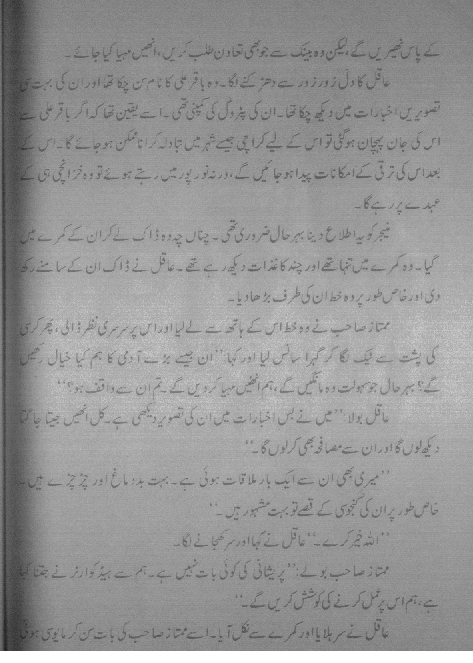 کے پاس ٹھیریں گے، لیکن وہ بینک سے جو بھی تعاون طلب کریں، انھیں مہیا کیا جائے۔
عاقل کا دل زور زور سے دھڑکنے لگا۔ وہ باقر علی کا نام سن چکا تھا اور ان کی بہت سی
تصویریں اخبارات میں دیکھ چکا تھا۔ ان کی پٹرول کی کمپنی تھی۔ اسے یقین تھا کہ اگر باقر علی سے
اس کی جان پہچان ہوگئی تو اس کے لیے کراچی جیسے شہر میں تبادلہ کرانا ممکن ہو جائے گا۔ اس کے
بعد اس کی ترقی کے امکانات پیدا ہو جائیں گے، ورنہ نور پور میں رہتے ہوئے تو وہ خزانچی ہی کے
عہدے پر رہے گا۔
منیجر کو یہ اطلاع دینا بہرحال ضروری تھی۔ چناں چہ وہ ڈاک لے کر ان کے کمرے میں
گیا۔ وہ کمرے میں تنہا تھے اور چند کاغذات دیکھ رہے تھے۔ عاقل نے ڈاک ان کے سامنے رکھ
دی اور خاص طور پر وہ خط ان کی طرف بڑھا دیا۔
ممتاز صاحب نے وہ خط اس کے ہاتھ سے لے لیا اور اس پر سرسری نظر ڈالی، پھر کرسی
کی پشت سے ٹیک لگا کر گہرا سانس لیا اور کہا: ’’ان جیسے بڑے آدمی کا ہم کیا خیال رکھیں
گے؟ بہرحال جو سہولت وہ مانگیں گے، ہم انھیں مہیا کر دیں گے۔ تم ان سے واقف ہو؟‘‘
عاقل بولا: ’’میں نے بس اخبارات میں ان کی تصویر دیکھی ہے۔ کل انھیں جیتا جاگتا
دیکھ لوں گا اور ان سے مصافحہ بھی کرلوں گا۔‘‘
’’میری بھی ان سے ایک بار ملاقات ہوئی ہے۔ بہت بددماغ اور چڑچڑے ہیں۔
خاص طور پر ان کی کنجوسی کے قصے تو بہت مشہور ہیں۔‘‘
’’اللہ خیر کرے۔‘‘ عاقل نے کہا اور سر کھجانے لگا۔
ممتاز صاحب بولے: ’’پریشانی کی کوئی بات نہیں ہے۔ ہم سے ہیڈ کوارٹر نے جتنا کہا
ہے، ہم اس پر عمل کرنے کی کوشش کریں گے۔‘‘
عاقل نے سر ہلایا اور کمرے سے نکل آیا۔ اسے ممتاز صاحب کی بات سن کر مایوسی ہوئی